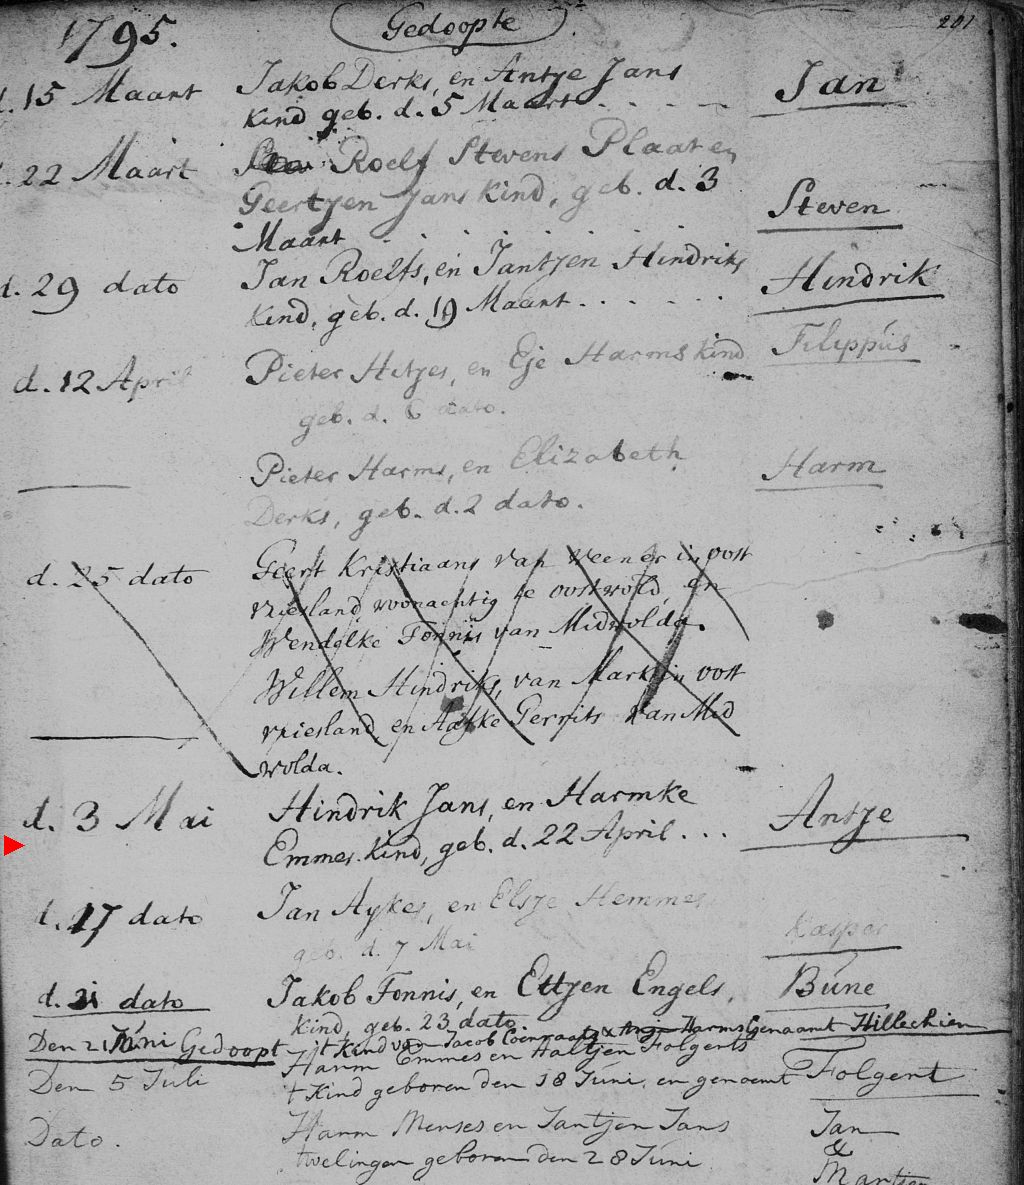 1795. Gedoopte 201
d. 15 Maart Jakob Derks, en Antje Jans Jan
Kind geb. d. 5 Maart . . . .
d. 22 Maart Roelf Stevens Plaat en
Geertjen Jans Kind, geb. d. 3 Steven
Maart . . . . . .
d. 29 dato Jan Roelfs, en Jantjen Hindriks Hindrik
Kind, geb. d. 19 Maart . . . . . .
d. 12 April Pieter Hitjes, en Eje Harms Kind Filippús
geb. d. 6 dato.
Pieter Harms, en Elizabeth Harm
Derks, geb. d. 2 dato.
d. 25 dato Geert Kristiaans van Veener in oost
vriesland woonachtig te oostwold, en
Wendelke Fonnis van Midwolda.
Willem Hindriks, van Mark in oost
vriesland, en Gerrits van Mid
wolda.
d. 3 Mai Hindrik Jans, en Harmke Antje
Emmes Kind, geb. d. 22 April . . .
d. 17 dato Jan Aykes, en Elsje Hemmes
geb. d. 7 Mai Kasper
d. 21 dato Jakob Fonnis, en Ettjen Engels, Búne
Kind, geb. 23 dato
Den 21 Júni Gedoopt 't Kind van Jacob Coenraads & Harms Genaamt Hillechien
Harm Emmes en Haltjen Folgerts
Den 5 Juli 't Kind geboren den 18 Júni, en genoemt Folgert
Dato. Harm Menses en Jantjen Jans Jan
twelingen geboren den 28 Júni &
Martjen